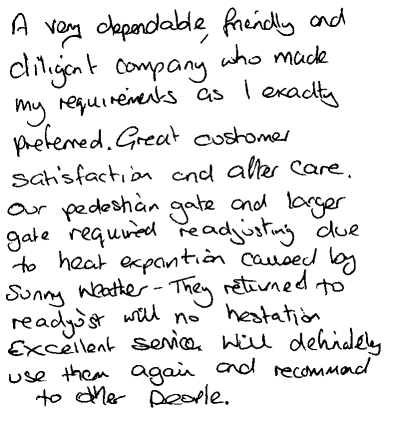 A very dependable, friendly and
diligant company who made
my requirements as I exactly
preferred. Great customer
satisfaction and after care.
Our pedestrian gate and larger
gate required readjusting due
to heat expantion caused by
Sunny Weather - They returned to
readjust with no hestation
Excellent service. Will definately
use them again and recommend
to other People.